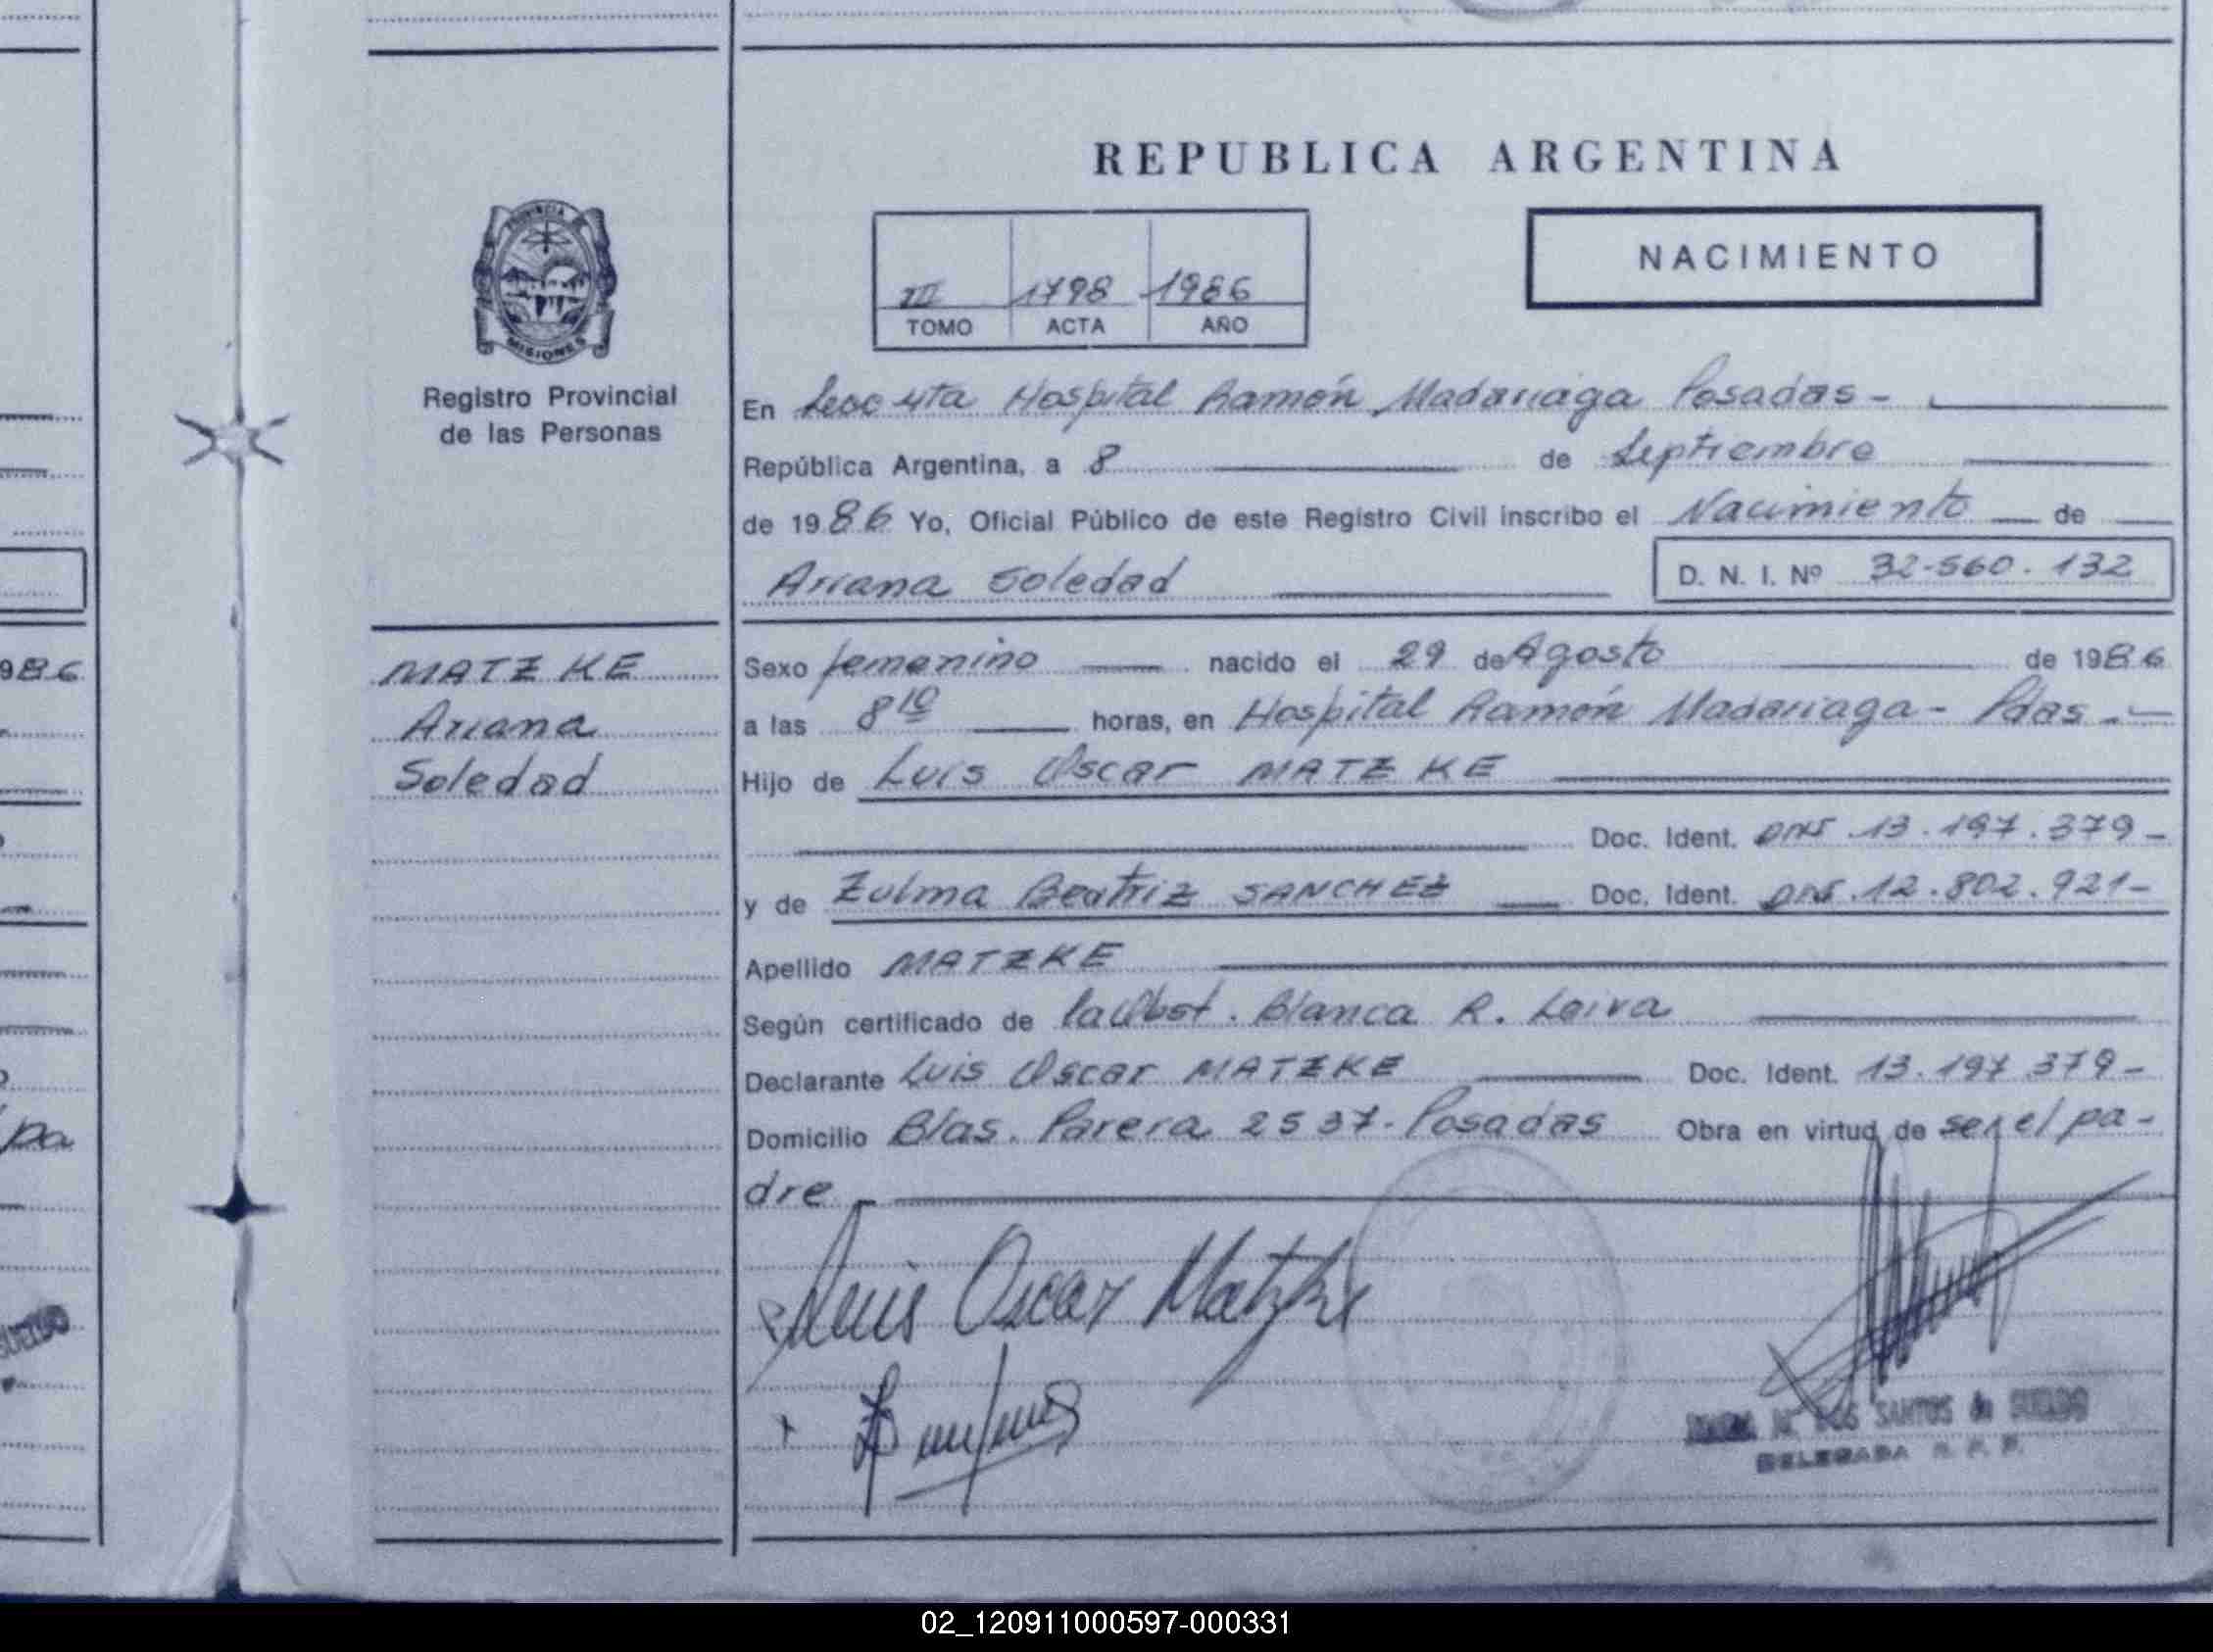 REPUBLICA ARGENTINA
NACIMIENTO
III 1798 1986
TOMO ACTA AÑO
PROVINCIA DE
MISIONES
Registro Provincial
de las Personas
En Secc 4ta Hospital Ramón Madariaga Posadas -
República Argentina, a 8 de Septiembre
de 1986 Yo, Oficial Público de este Registro Civil inscribo el Nacimiento de
Ariana Soledad D. N. I. Nº 32-560.132
MATZKE
Ariana
Soledad
Sexo femenino nacido el 29 de Agosto de 1986
a las 8 10 horas, en Hospital Ramón Madariaga - Pdas -
Hijo de Luis Oscar MATZKE
Doc. Ident. DNI .13.197.379-
y de Zulma Beatriz SANCHEZ Doc. Ident. DNI .12.802.921-
Apellido MATZKE
Según certificado de la Obst. Blanca R. Leiva
Declarante Luis Oscar MATZKE Doc. Ident. 13.197.379-
Domicilio Blas. Parera 2537- Posadas Obra en virtud de ser el pa-
dre -
Luis Oscar Matzke
DOS SANTOS de SUELDO
DELEGADA R. P. P.
986
pa
SUELDO
02_120911000597-000331